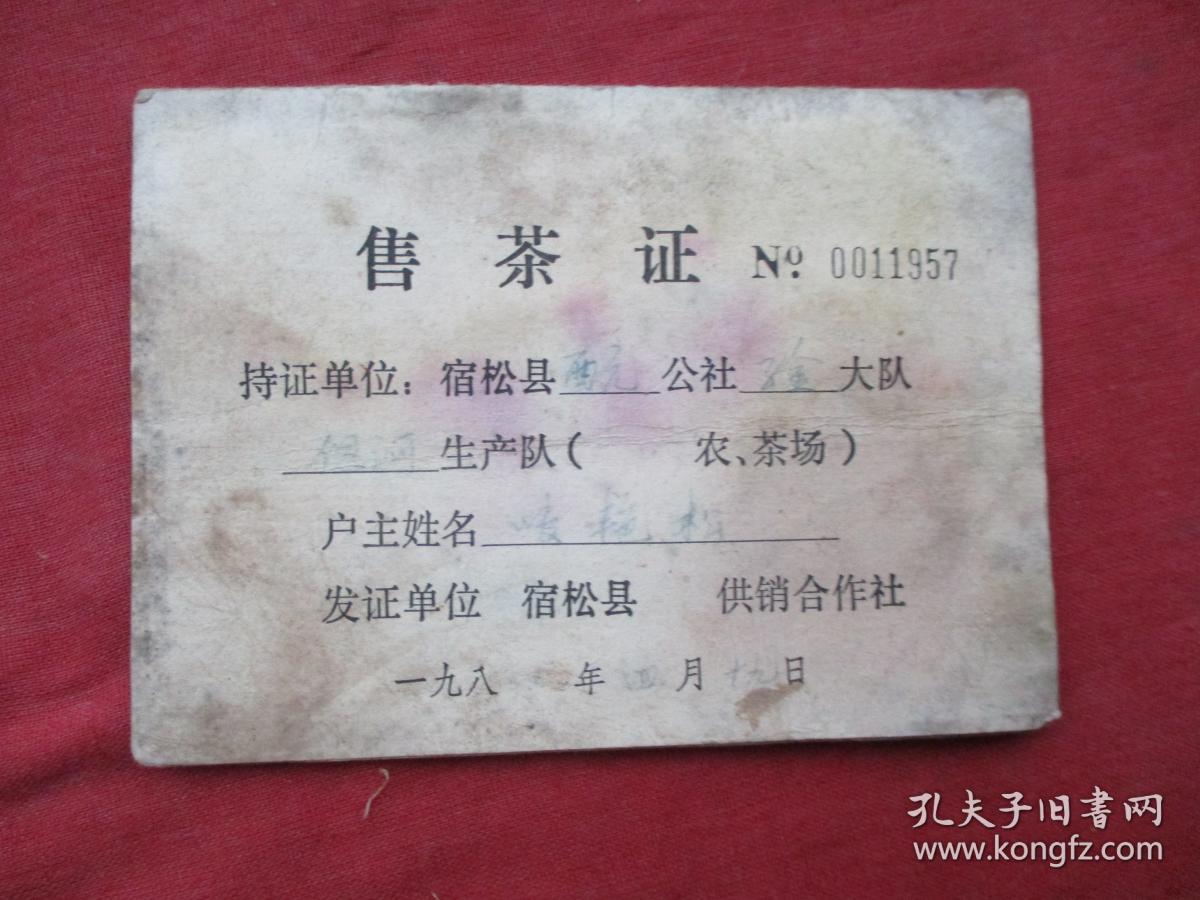 售茶证 Nº 0011957
持证单位：宿松县公社大队
生产队（ 农、茶场）
户主姓名
发证单位 宿松县 供销合作社
一九八 年四月十九日
孔夫子旧书网
www.kongfz.com